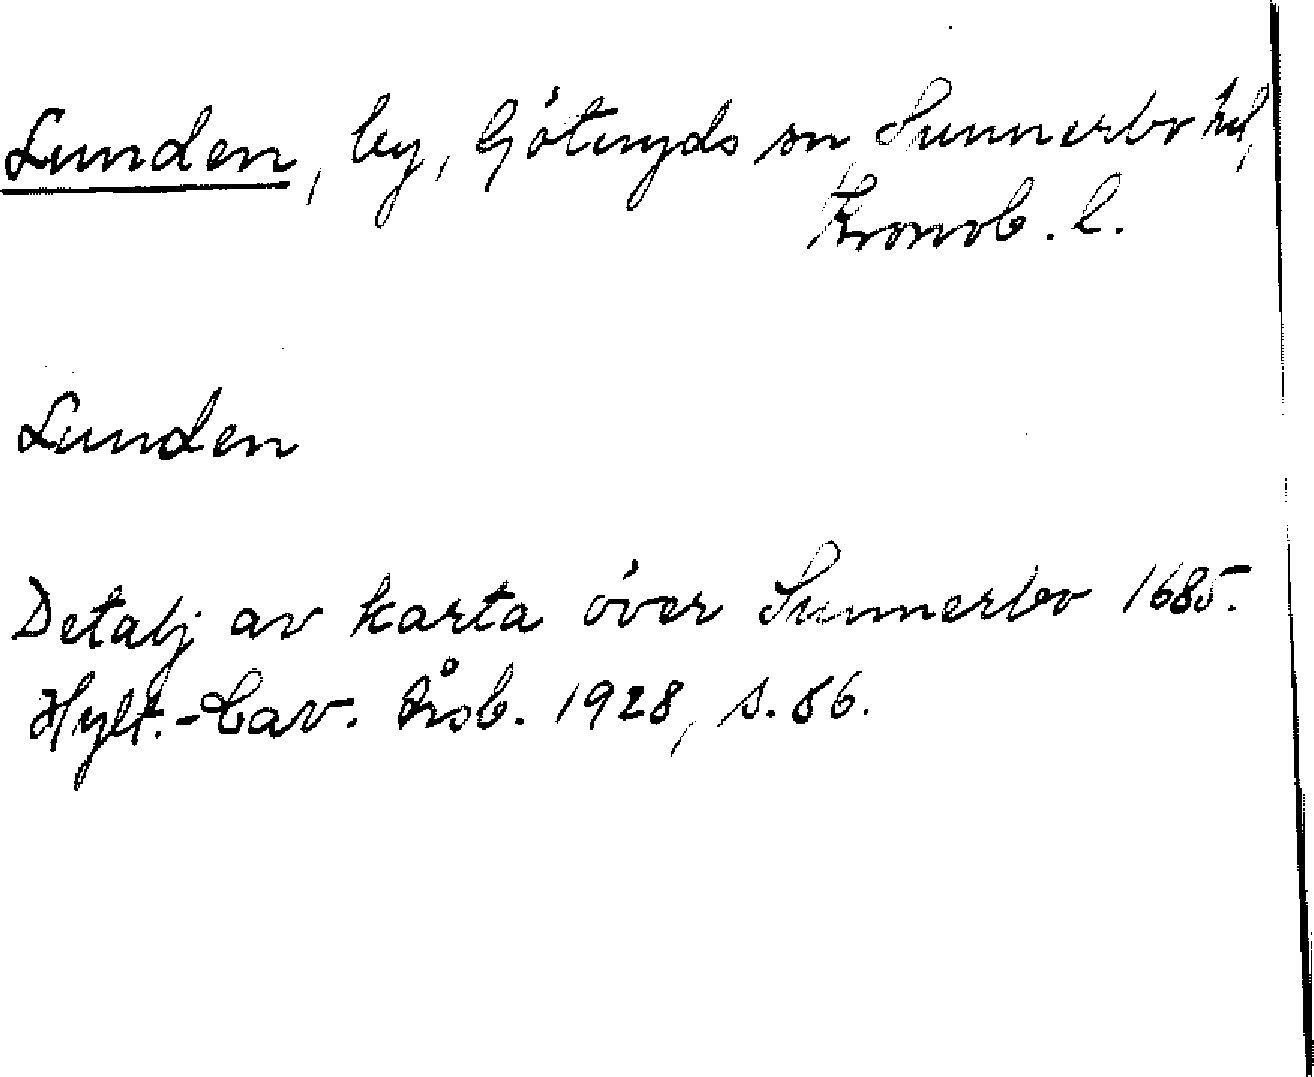 Lunden, by, Göteryds sn, Sunnerbo hd,
Kronob. l.
Lunden
Detalj av karta över Sunnerbo 1685.
Hylt.-Cav. Årsb. 1928, s. 56.